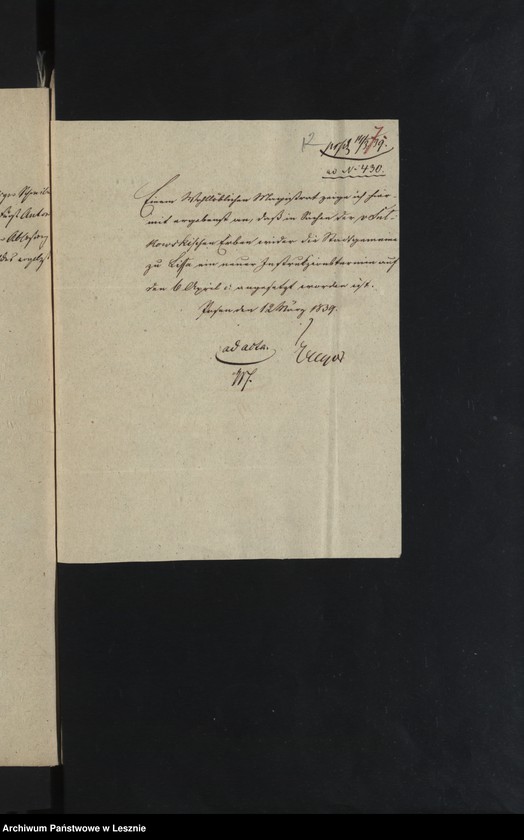 12
7
ad No 430.
Einem Wohllöblichen Magistrat zeige ich hier-
mit ergebenst an, daß in Sachen der v Sul-
kowskischen Erben wider die Stadtgemeine
zu Lissa ein neuer Instruktionstermin auf
den 6 April c. angesetzt worden ist.
Posen den 12 März 1839.
ad acta.
Archiwum Państwowe w Lesznie